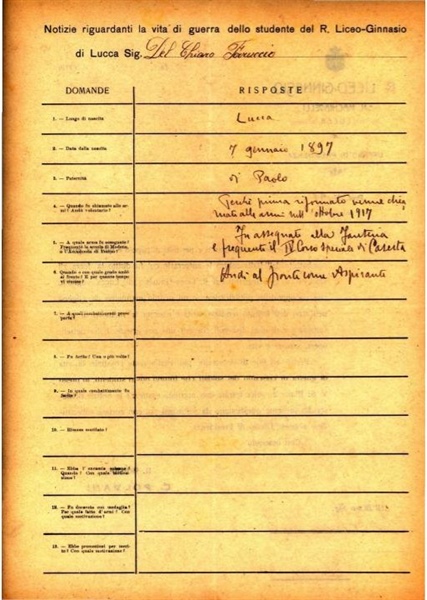 Notizie riguardanti la vita di guerra dello studente del R. Liceo-Ginnasio
di Lucca Sig. Del Chiaro Ferruccio
DOMANDE
RISPOSTE
1. — Luogo di nascita
Lucca
2. — Data della nascita
7 gennaio 1897
3. — Paternità
di Paolo
4. — Quando fu chiamato alle armi? Andò volontario?
Perché prima riformato venne chia
mato alle armi nell'ottobre 1917
5. — A quale arma fu assegnato?
Frequentò la scuola di Modena,
o l'Accademia di Torino?
Fu assegnato alla Fanteria
e frequentò il IV Corso speciale di Caserta
6. Quando e con quale grado andò
al fronte? E per quanto tempo
vi rimase?
Andò al fronte come Aspirante
7. — A quali combattimenti prese
parte?
8. — Fu ferito? Una o più volte?
9. — In quale combattimento fu
ferito?
10. — Rimase mutilato?
11. — Ebbe l'encomio solenne?
Quando? Con quale motivazione?
12. — Fu decorato con medaglia?
Per quale fatto d'armi? Con
quale motivazione?
13. — Ebbe promozioni per merito?
Con quale motivazione?